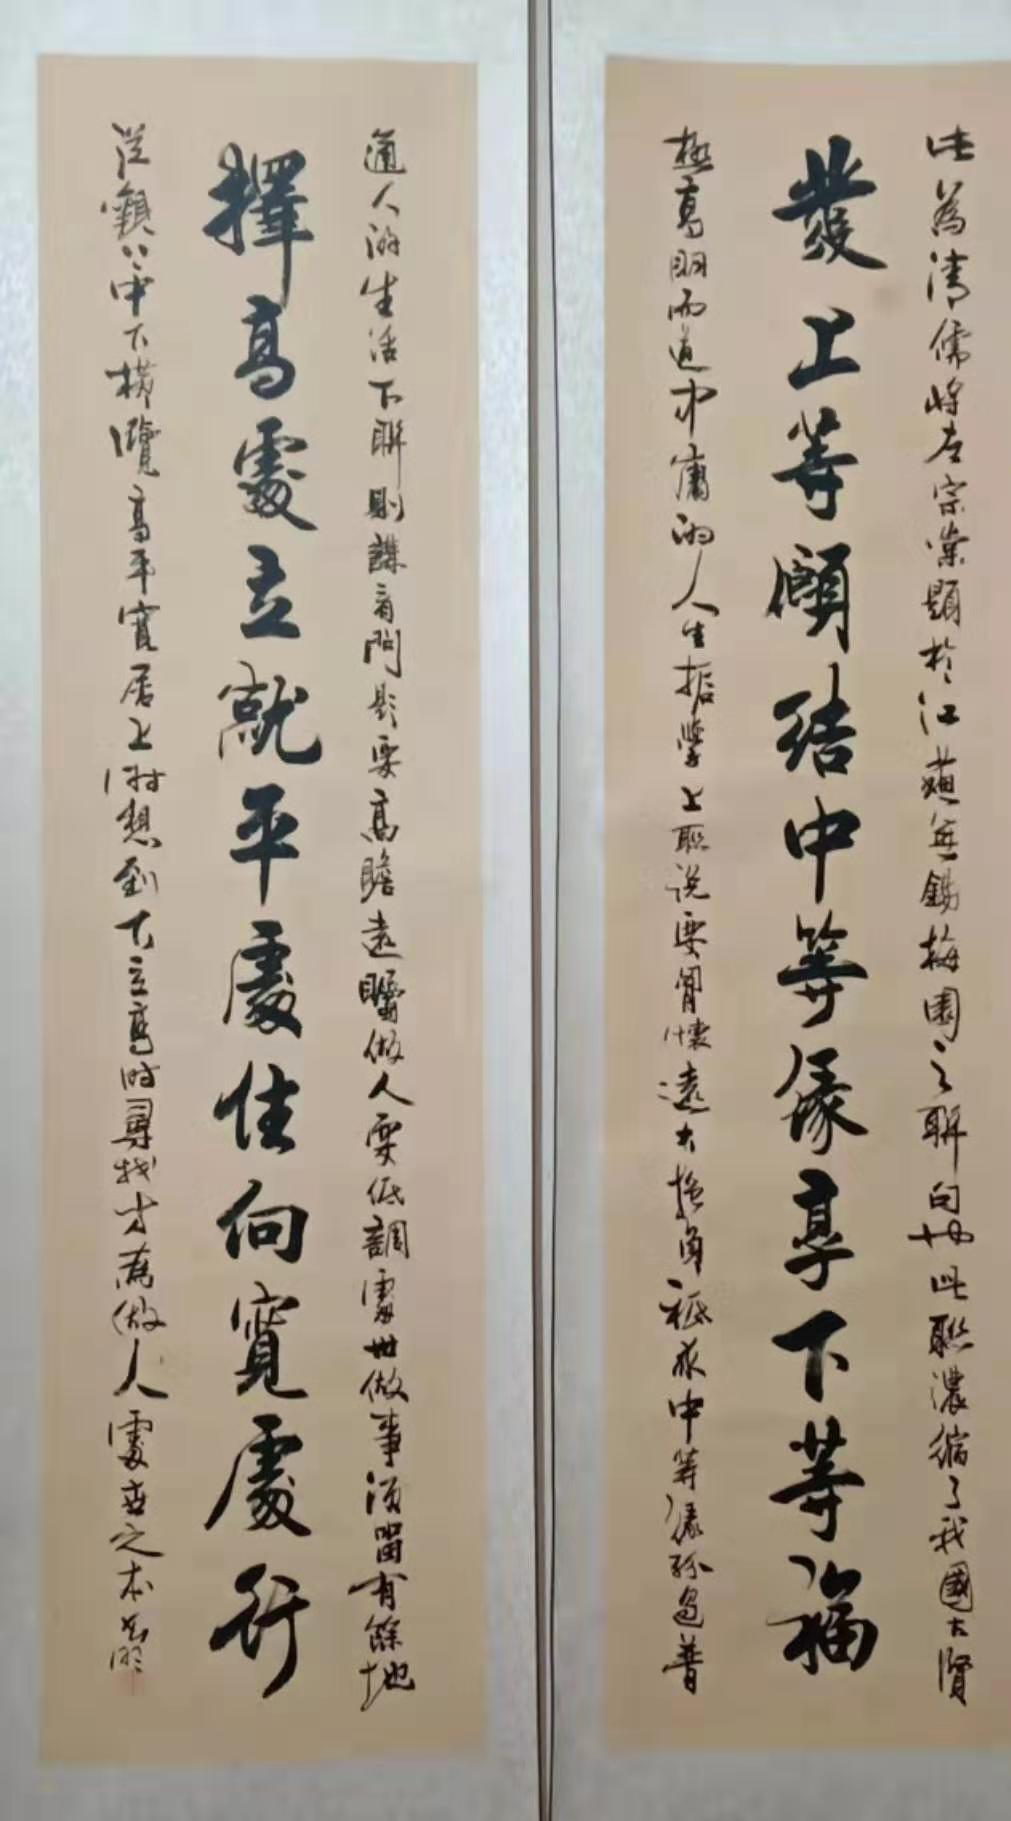 此為清儒將左宗棠題於江蘇無錫梅園之聯句也此聯濃縮了我國古賢
發上等願結中等緣享下等福
極高明而道中庸的人生哲學上聯說要胸懷遠大抱負祗求中等緣份過普
通人的生活下聯則謀看問題要高瞻遠矚做人要低調處世做事須留有餘地
擇高處立就平處住向寬處行
上中下橫覽高平寬居上時想到下立高時尋找方為做人處世之本